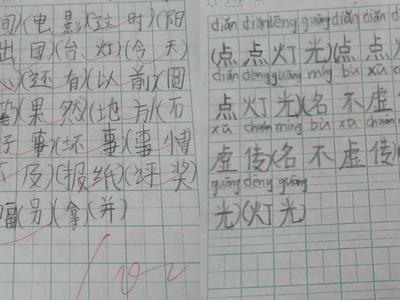 间)(电影)(这时)(阳
出国)(台灯)(今天)
心)(还有)(以前)(圆
(果然)(地方)(石
事)(坏事)(事情
及)(报纸)(评奖)
福)(另)(拿)(并)
diǎn diǎn dēng guāng diǎn diǎn
(点点灯光)(点点
diǎn dēng guāng míng bù xū
点灯光)(名不虚
xū chuán míng bù xū chuán
虚传)(名不虚传)
guāng dēng guāng
光)(灯光)